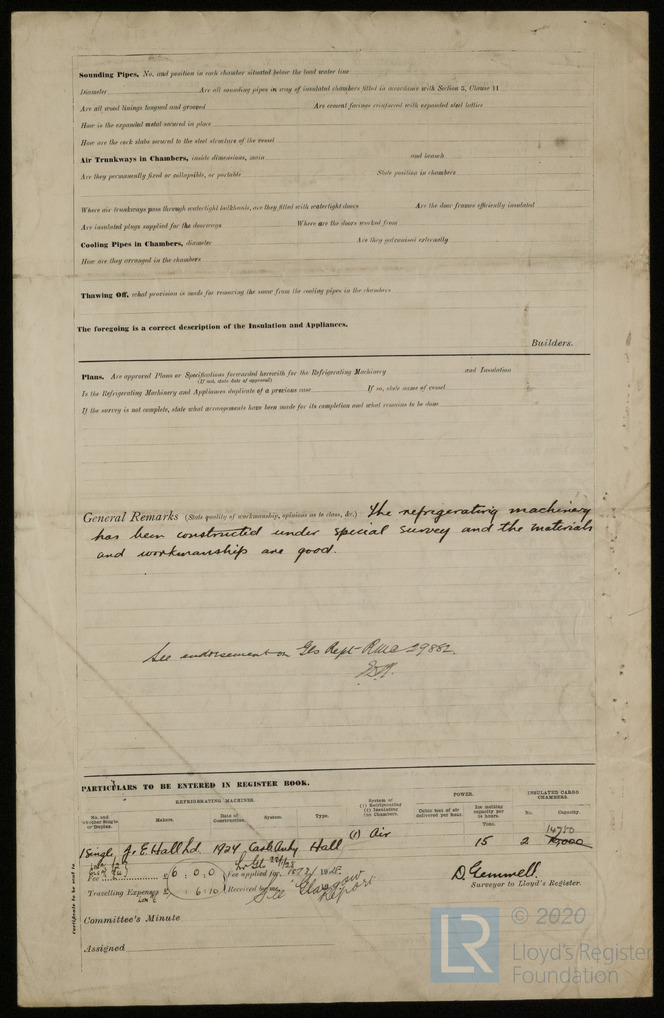 Sounding Pipes, No. and position in each chamber situated below the load water line
Diameter Are all sounding pipes in way of insulated chambers fitted in accordance with Section 3, Clause 11
Are all wood linings tongued and grooved Are cement facings reinforced with expanded steel lattice
How is the expanded metal secured in place
How are the cork slabs secured to the steel structure of the vessel
Air Trunkways in Chambers, inside dimensions, main and branch
Are they permanently fixed or collapsible, or portable State position in chambers
Where air trunkways pass through watertight bulkheads, are they fitted with watertight doors Are the door frames efficiently insulated
Are insulated plugs supplied for the doorways Where are the doors worked from
Cooling Pipes in Chambers, diameter Are they galvanised externally
How are they arranged in the chambers
Thawing Off, what provision is made for removing the snow from the cooling pipes in the chambers
The foregoing is a correct description of the Insulation and Appliances.
Builders.
Plans. Are approved Plans or Specifications forwarded herewith for the Refrigerating Machinery and Insulation
(If not, state date of approval)
Is the Refrigerating Machinery and Appliances duplicate of a previous case If so, state name of vessel
If the survey is not complete, state what arrangements have been made for its completion and what remains to be done
General Remarks (State quality of workmanship, opinions as to class, &c.) The refrigerating machinery
has been constructed under special survey and the materials
and workmanship are good.
See endorsement on Gls Rept 29882.
PARTICULARS TO BE ENTERED IN REGISTER BOOK.
REFRIGERATING MACHINES. System of (1) Refrigerating (2) Insulating the Chambers. POWER. INSULATED CARGO CHAMBERS.
No. and whether Single or Duplex. Makers. Date of Construction. System. Type. Cubic feet of air delivered per hour. Ice melting capacity per 24 hours. Tons. No. Capacity.
1 Single J. E. Hall Ld. 1924 Carb. Anhy Hall (1) Air 15 2 14750
Fee £ 6 : 0 : 0 Fee applied for,
Travelling Expenses £ : 6 : 10 Received by me, See Glasgow Report
D. Gemmell.
Surveyor to Lloyd's Register.
Committee's Minute
Assigned
Certificate to be sent to
© 2020
LR
Lloyd's Register
Foundation